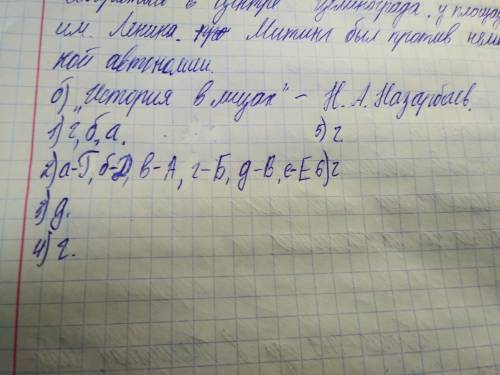 в центре Целинограда, у площад
им. Ленина. Митинг был против неме
кой автономии.
б) „История в лицах" – Н. А. Назарбаев.
1) г, б, а. 5) г
2) а-Г, б-Д, в-А, г-Б, д-В, е-Е 6) г
3) д.
4) г.